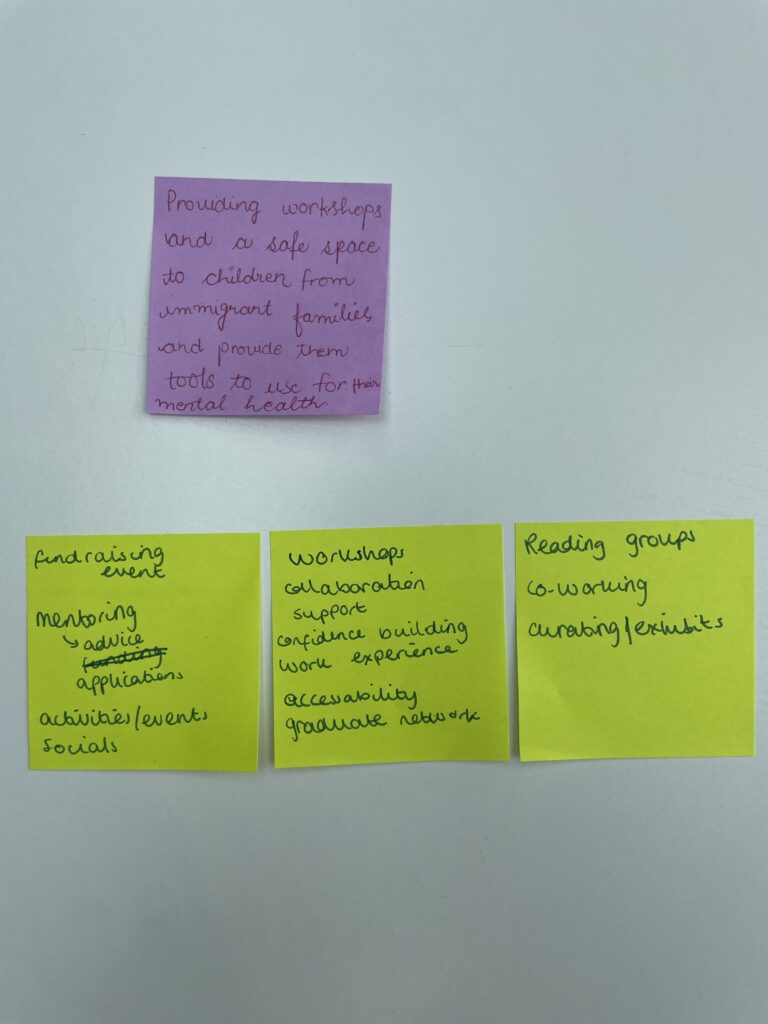 Providing workshops
and a safe space
to children from
immigrant families
and provide them
tools to use for their
mental health.
fundraising
event
mentoring
↳ advice
funding
applications
activities/events
socials
workshops
collaboration
support
confidence building
work experience
accessability
graduate network
Reading groups
co-working
curating/exhibits